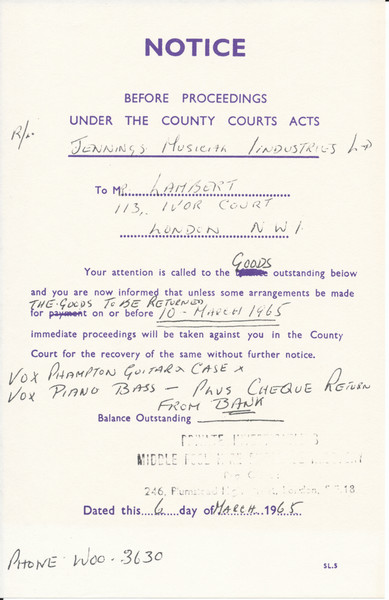 NOTICE
BEFORE PROCEEDINGS
UNDER THE COUNTY COURTS ACTS
R/-
JENNINGS MUSICAL INDUSTRIES LTD
To MR. LAMBERT
113, IVOR COURT
LONDON N W 1.
GOODS
Your attention is called to the outstanding below
and you are now informed that unless some arrangements be made
THE GOODS TO BE RETURNED
for payment on or before 10 - MARCH 1965
immediate proceedings will be taken against you in the County
Court for the recovery of the same without further notice.
VOX PHAMPTON GUITAR & CASE x
VOX PIANO BASS — PLUS CHEQUE RETURN
FROM BANK
Balance Outstanding
PRIVATE
MIDDLE
246, Plumstead London, S.E.18
Dated this....6....day of MARCH 1965
PHONE WOO - 3630
SL.5